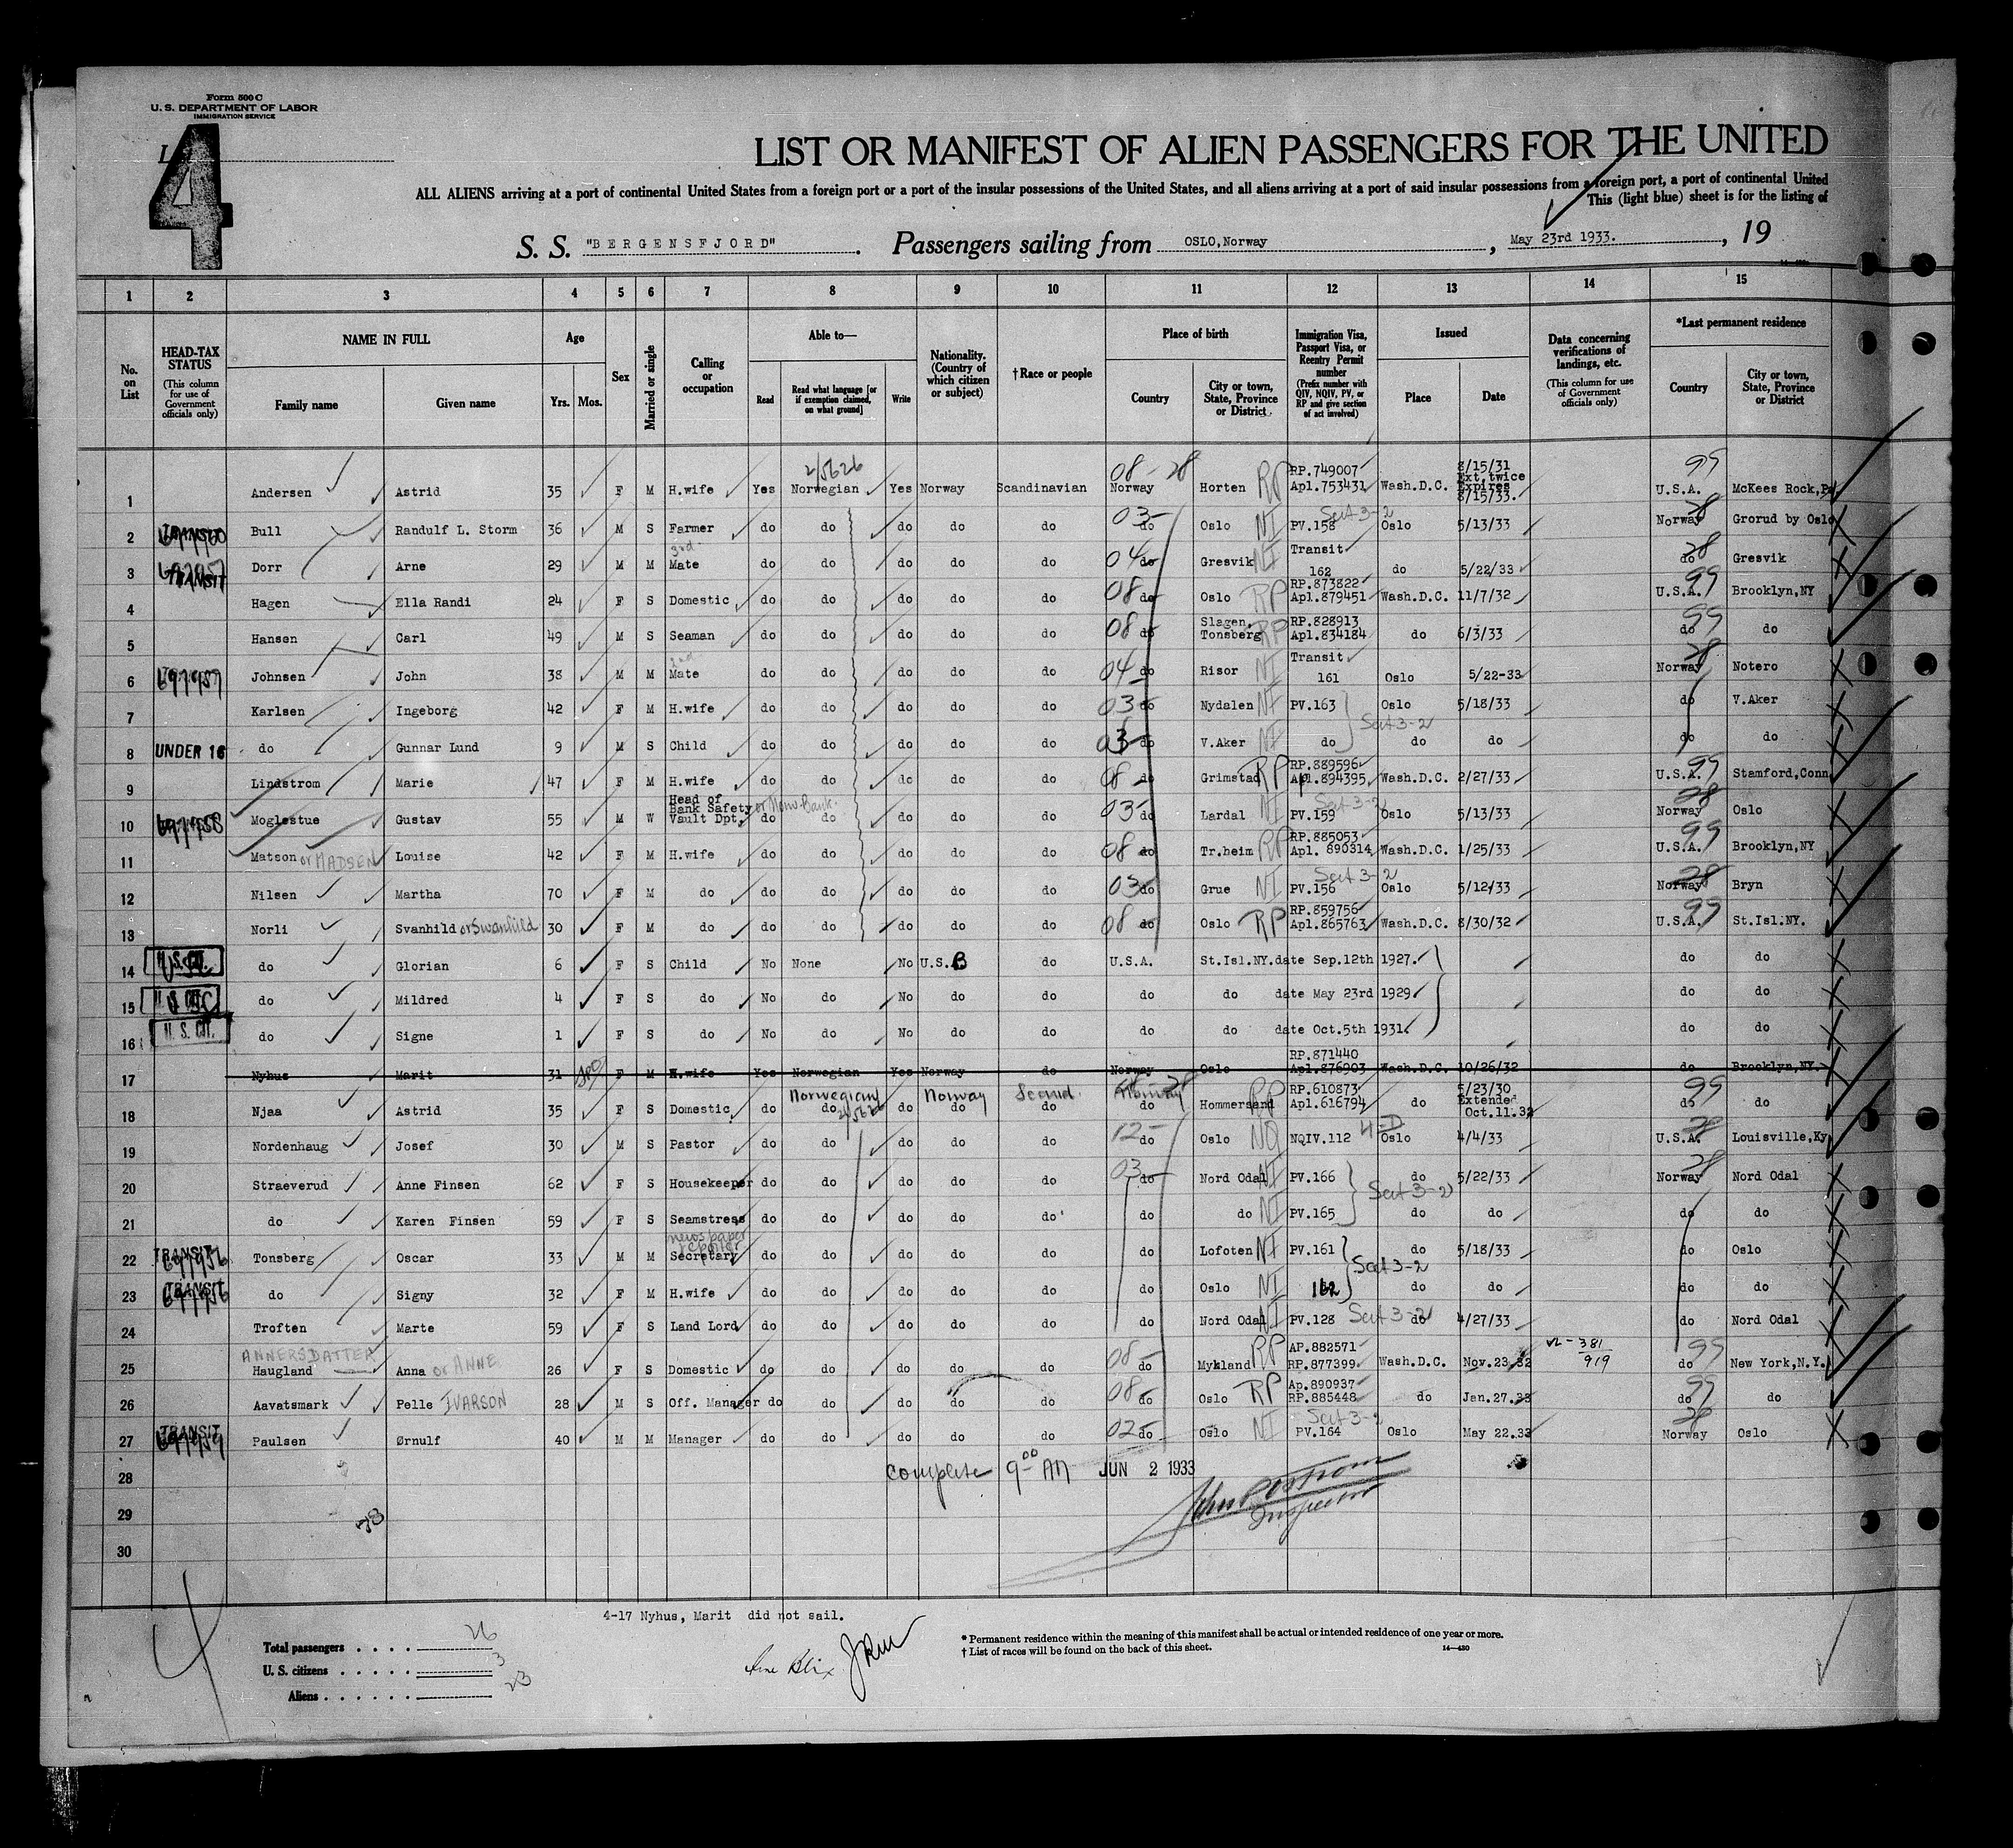 Form 500 C
U. S. DEPARTMENT OF LABOR
IMMIGRATION SERVICE
4
LIST OR MANIFEST OF ALIEN PASSENGERS FOR THE UNITED
ALL ALIENS arriving at a port of continental United States from a foreign port or a port of the insular possessions of the United States, and all aliens arriving at a port of said insular possessions from a foreign port, a port of continental United
This (light blue) sheet is for the listing of
S. S. "BERGENSFJORD" . Passengers sailing from OSLO,Norway , May 23rd 1933. , 19
1 2 3 4 5 6 7 8 9 10 11 12 13 14 15
No. on List
HEAD-TAX STATUS (This column for use of Government officials only)
NAME IN FULL Family name Given name
Age Yrs. Mos.
Sex
Married or single
Calling or occupation
Able to— Read Read what language [or if exemption claimed, on what ground] Write
Nationality. (Country of which citizen or subject)
†Race or people
Place of birth Country City or town, State, Province or District
Immigration Visa, Passport Visa, or Reentry Permit number (Prefix number with QIV, NQIV, PV, or RP and give section of act involved)
Issued Place Date
Data concerning verifications of landings, etc. (This column for use of Government officials only)
*Last permanent residence Country City or town, State, Province or District
1 Andersen Astrid 35 F M H.wife Yes 2/5626 Norwegian Yes Norway Scandinavian 08-28 Norway Horten RP RP.749007 Apl.753431 Wash.D.C. 8/15/31 Ext.twice Expires 8/15/33. 99 U.S.A. McKees Rock,Pa.
2 TRANSIT Bull Randulf L. Storm 36 M S Farmer do do do do do 03- do Oslo NI PV.158 Sect 3-2 Oslo 5/13/33 28 Norway Grorud by Oslo
3 TRANSIT Dorr Arne 29 M M 3rd Mate do do do do do 04 do Gresvik NI Transit 162 do 5/22/33 28 do Gresvik
4 Hagen Ella Randi 24 F S Domestic do do do do do 08 do Oslo RP RP.873822 Apl.879451 Wash.D.C. 11/7/32 99 U.S.A. Brooklyn,NY
5 Hansen Carl 49 M S Seaman do do do do do 08 do Slagen, Tonsberg RP RP.828913 Apl.834184 do 6/3/33 99 do do
6 697957 Johnsen John 38 M M 2nd Mate do do do do do 04 do Risor NI Transit 161 Oslo 5/22-33 28 Norway Notero
7 Karlsen Ingeborg 42 F M H.wife do do do do do 03 do Nydalen NI PV.163 Sect 3-2 Oslo 5/18/33 do V.Aker
8 UNDER 16 do Gunnar Lund 9 M S Child do do do do do 03 do V.Aker NI do do do do do
9 Lindstrom Marie 47 F M H.wife do do do do do 08 do Grimstad RP RP.889596 Apl.894395 Wash.D.C. 2/27/33 99 U.S.A. Stamford,Conn.
10 Moglestue Gustav 55 M W Head of Bank Safety Vault Dpt. do do do do do 03 do Lardal NI PV.159 Sect 3-2 Oslo 5/13/33 28 Norway Oslo
11 Matson or MADSEN Louise 42 F M H.wife do do do do do 08 do Tr.heim RP RP.885053 Apl. 890314 Wash.D.C. 1/25/33 99 U.S.A. Brooklyn,NY
12 Nilsen Martha 70 F M do do do do do do 03 do Grue NI PV.156 Sect 3-2 Oslo 5/12/33 28 Norway Bryn
13 Norli Svanhild or Swanhild 30 F M do do do do do do 08 do Oslo RP RP.859756 Apl.865763 Wash.D.C. 8/30/32 99 U.S.A. St.Isl.NY.
14 U. S. CIT. do Glorian 6 F S Child No None No U.S.A do U.S.A. St.Isl.NY. date Sep.12th 1927. do do
15 U. S. CIT. do Mildred 4 F S do No do No do do do do date May 23rd 1929 do do
16 U. S. CIT. do Signe 1 F S do No do No do do do do date Oct.5th 1931. do do
17 Nyhus Marit 31 F M H.wife Yes Norwegian Yes Norway do Norway Oslo RP.871440 Apl.876903 Wash.D.C. 10/26/32 do Brooklyn,NY.
18 Njaa Astrid 35 F S Domestic do Norwegian do 2/5626 do Norway do Scand. do Norway do Hommersand RP RP.610873 Apl.616794 do 5/23/30 Extended Oct.11.32 99 do do
19 Nordenhaug Josef 30 M S Pastor do do do do do 12- do Oslo NQ NQIV.112 4-D Oslo 4/4/33 28 U.S.A. Louisville,Ky
20 Straeverud Anne Finsen 62 F S Housekeeper do do do do do 03 do Nord Odal NI PV.166 Sect 3-2 do 5/22/33 28 Norway Nord Odal
21 do Karen Finsen 59 F S Seamstress do do do do do do do NI PV.165 do do do do
22 TRANSIT 697956 Tonsberg Oscar 33 M M newspaper reporter Secretary do do do do do do Lofoten NI PV.161 Sect 3-2 do 5/18/33 do Oslo
23 TRANSIT 697956 do Signy 32 F M H.wife do do do do do do Oslo NI 162 do do do do
24 Troften Marte 59 F S Land Lord do do do do do do Nord Odal NI PV.128 Sect 3-2 do 4/27/33 do Nord Odal
25 ANNERSDATTER Haugland Anna or ANNE 26 F S Domestic do do do do do 08- do Mykland RP AP.882571 RP.877399 Wash.D.C. Nov.23.32 381 919 99 do New York,N.Y.
26 Aavatsmark Pelle IVARSON 28 M S Off. Manager do do do do do 08 do Oslo RP Ap.890937 RP.885448 do Jan.27.33 99 do do
27 TRANSIT 697959 Paulsen Ørnulf 40 M M Manager do do do do do 02 do Oslo NI Sect 3-2 PV.164 Oslo May 22.33 28 Norway Oslo
28 Complete 9 00 AM JUN 2 1933
29 Inspector
30
4-17 Nyhus, Marit did not sail.
Total passengers . . . . 26
U. S. citizens . . . . . 3
Aliens . . . . . . 23
* Permanent residence within the meaning of this manifest shall be actual or intended residence of one year or more.
† List of races will be found on the back of this sheet.
14—430